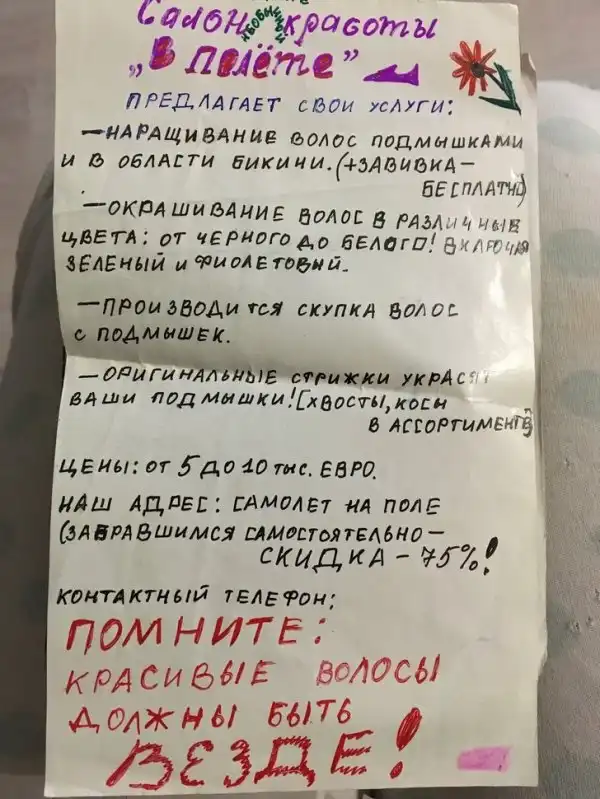 Салон красоты
„В полёте”
ПРЕДЛАГАЕТ СВОИ УСЛУГИ:
—НАРАЩИВАНИЕ ВОЛОС ПОДМЫШКАМИ
И В ОБЛАСТИ БИКИНИ. (+ЗАВИВКА—
БЕСПЛАТНО)
—ОКРАШИВАНИЕ ВОЛОС В РАЗЛИЧНЫЕ
ЦВЕТА: ОТ ЧЕРНОГО ДО БЕЛОГО! ВКЛЮЧАЯ
ЗЕЛЕНЫЙ И ФИОЛЕТОВЫЙ.
—ПРОИЗВОДИТСЯ СКУПКА ВОЛОС
С ПОДМЫШЕК.
—ОРИГИНАЛЬНЫЕ СТРИЖКИ УКРАСЯТ
ВАШИ ПОДМЫШКИ! (ХВОСТЫ, КОСЫ
В АССОРТИМЕНТЕ)
ЦЕНЫ: ОТ 5 ДО 10 ТЫС. ЕВРО.
НАШ АДРЕС: САМОЛЕТ НА ПОЛЕ
(ЗАБРАВШИМСЯ САМОСТОЯТЕЛЬНО—
СКИДКА – 75%!
КОНТАКТНЫЙ ТЕЛЕФОН:
ПОМНИТЕ:
КРАСИВЫЕ ВОЛОСЫ
ДОЛЖНЫ БЫТЬ
ВЕЗДЕ!